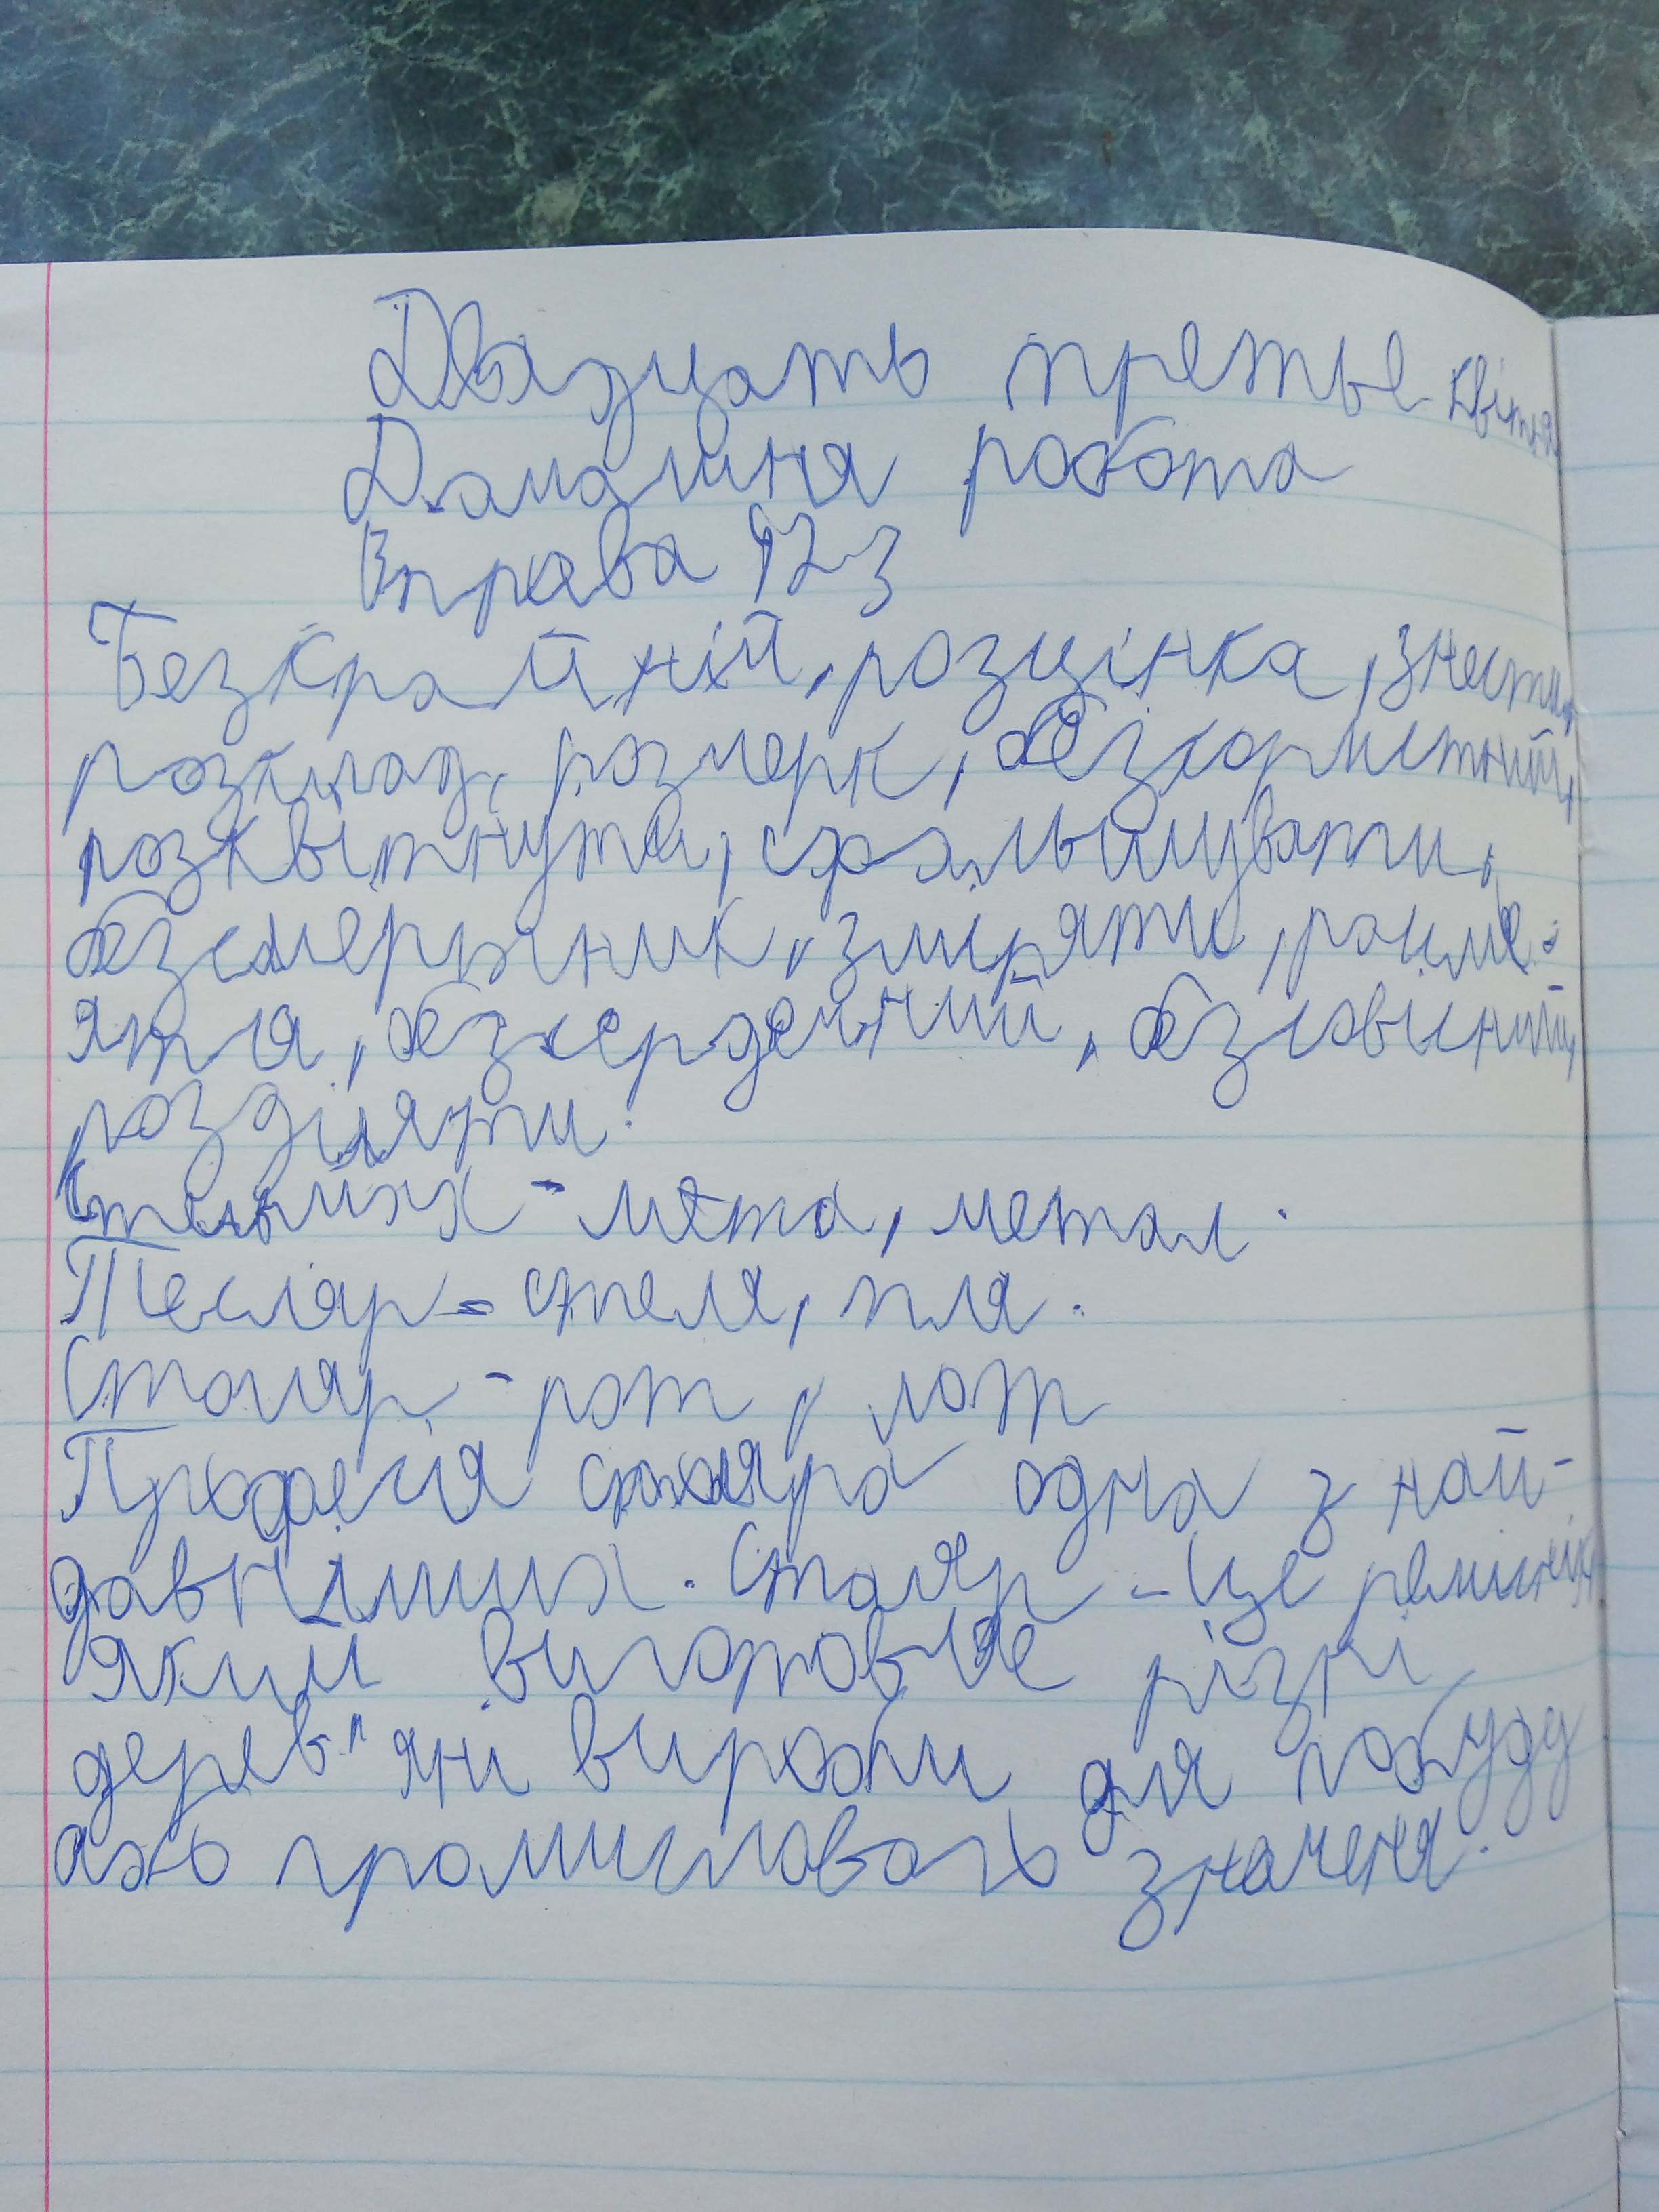 Двадцять третье квітня
Домашня робота
Вправа 123
Безкрайній, розцінка, знести,
розклад, розчерк, безкорисний,
розквітнути, сфальшувати,
безсмертник, зміряти, розме-
ятся, безсердечний, безсовісний,
розділяти.
- мета, метал.
Тесляр - стеля, пля.
Столяр - рот, лот
Професія столяра одна з най-
давніших. Столяр - це
який виготовляє різні
дерев'яні вироби для побуду
або промислового значеня.